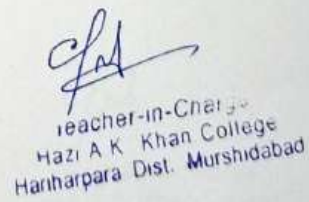 Teacher-in-Charge
Hazi A K Khan College
Hariharpara Dist. Murshidabad